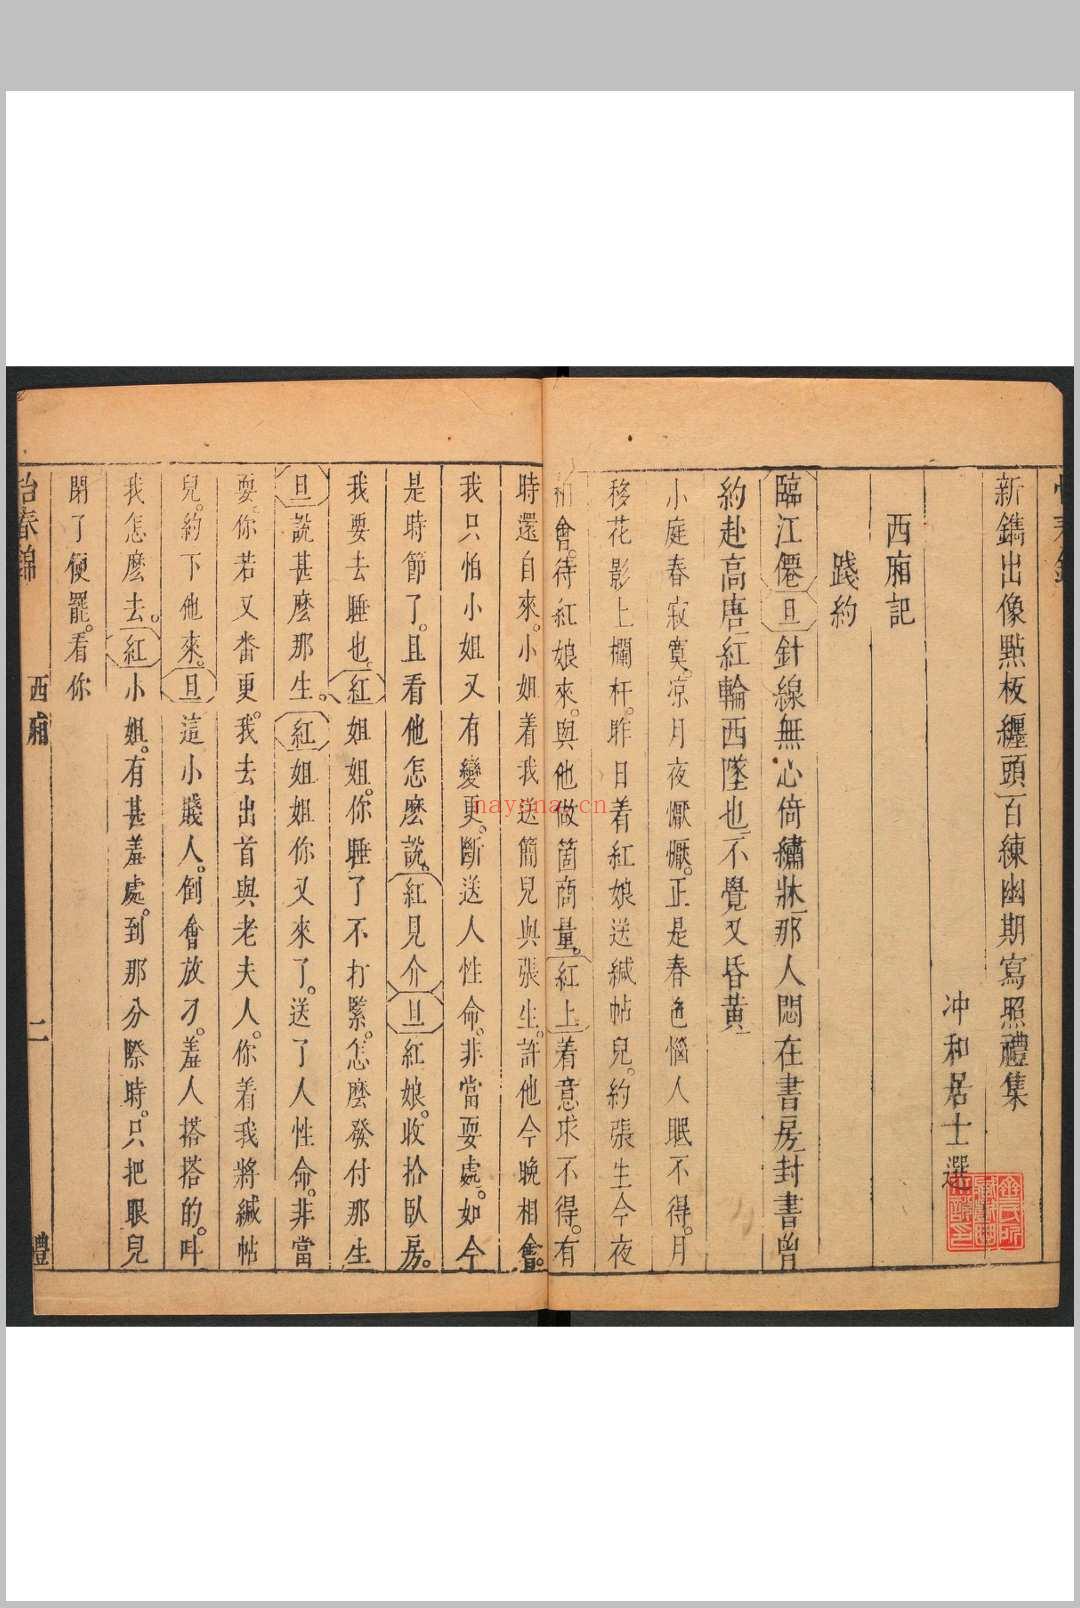 新鐫出像點板纏頭百練幽期寫照禮集
冲和居士選
西廂記
踐約
臨江僊旦針線無心倚繡牀那人悶在書房封書曾
約赴高唐紅輪西墜也不覺又昏黃
小庭春寂寞凉月夜懨懨。正是春色惱人眠不得。月
移花影上欄杆。昨日着紅娘送緘帖兒。約張生今夜
相會。待紅娘來。與他做箇商量。紅上着意求不得。有
時還自來。小姐着我送簡兒與張生。許他今晚相會。
我只怕小姐又有變更。斷送人性命。非當耍處。如今
是時節了。且看他怎麽說。紅見介旦紅娘。收拾臥房。
我要去睡也。紅姐姐。你睡了不打緊。怎麽發付那生
旦說甚麽那生。紅姐姐你又來了。送了人性命。非當
耍。你若又番更。我去出首與老夫人。你着我將緘帖
兒。約下他來。旦這小賤人。倒會放刁。羞人搭搭的。呌
我怎麽去。紅小姐。有甚羞處。到那分際時。只把眼兒
閉了便罷。看你
怡春錦
西廂
二
禮
nayona.cn